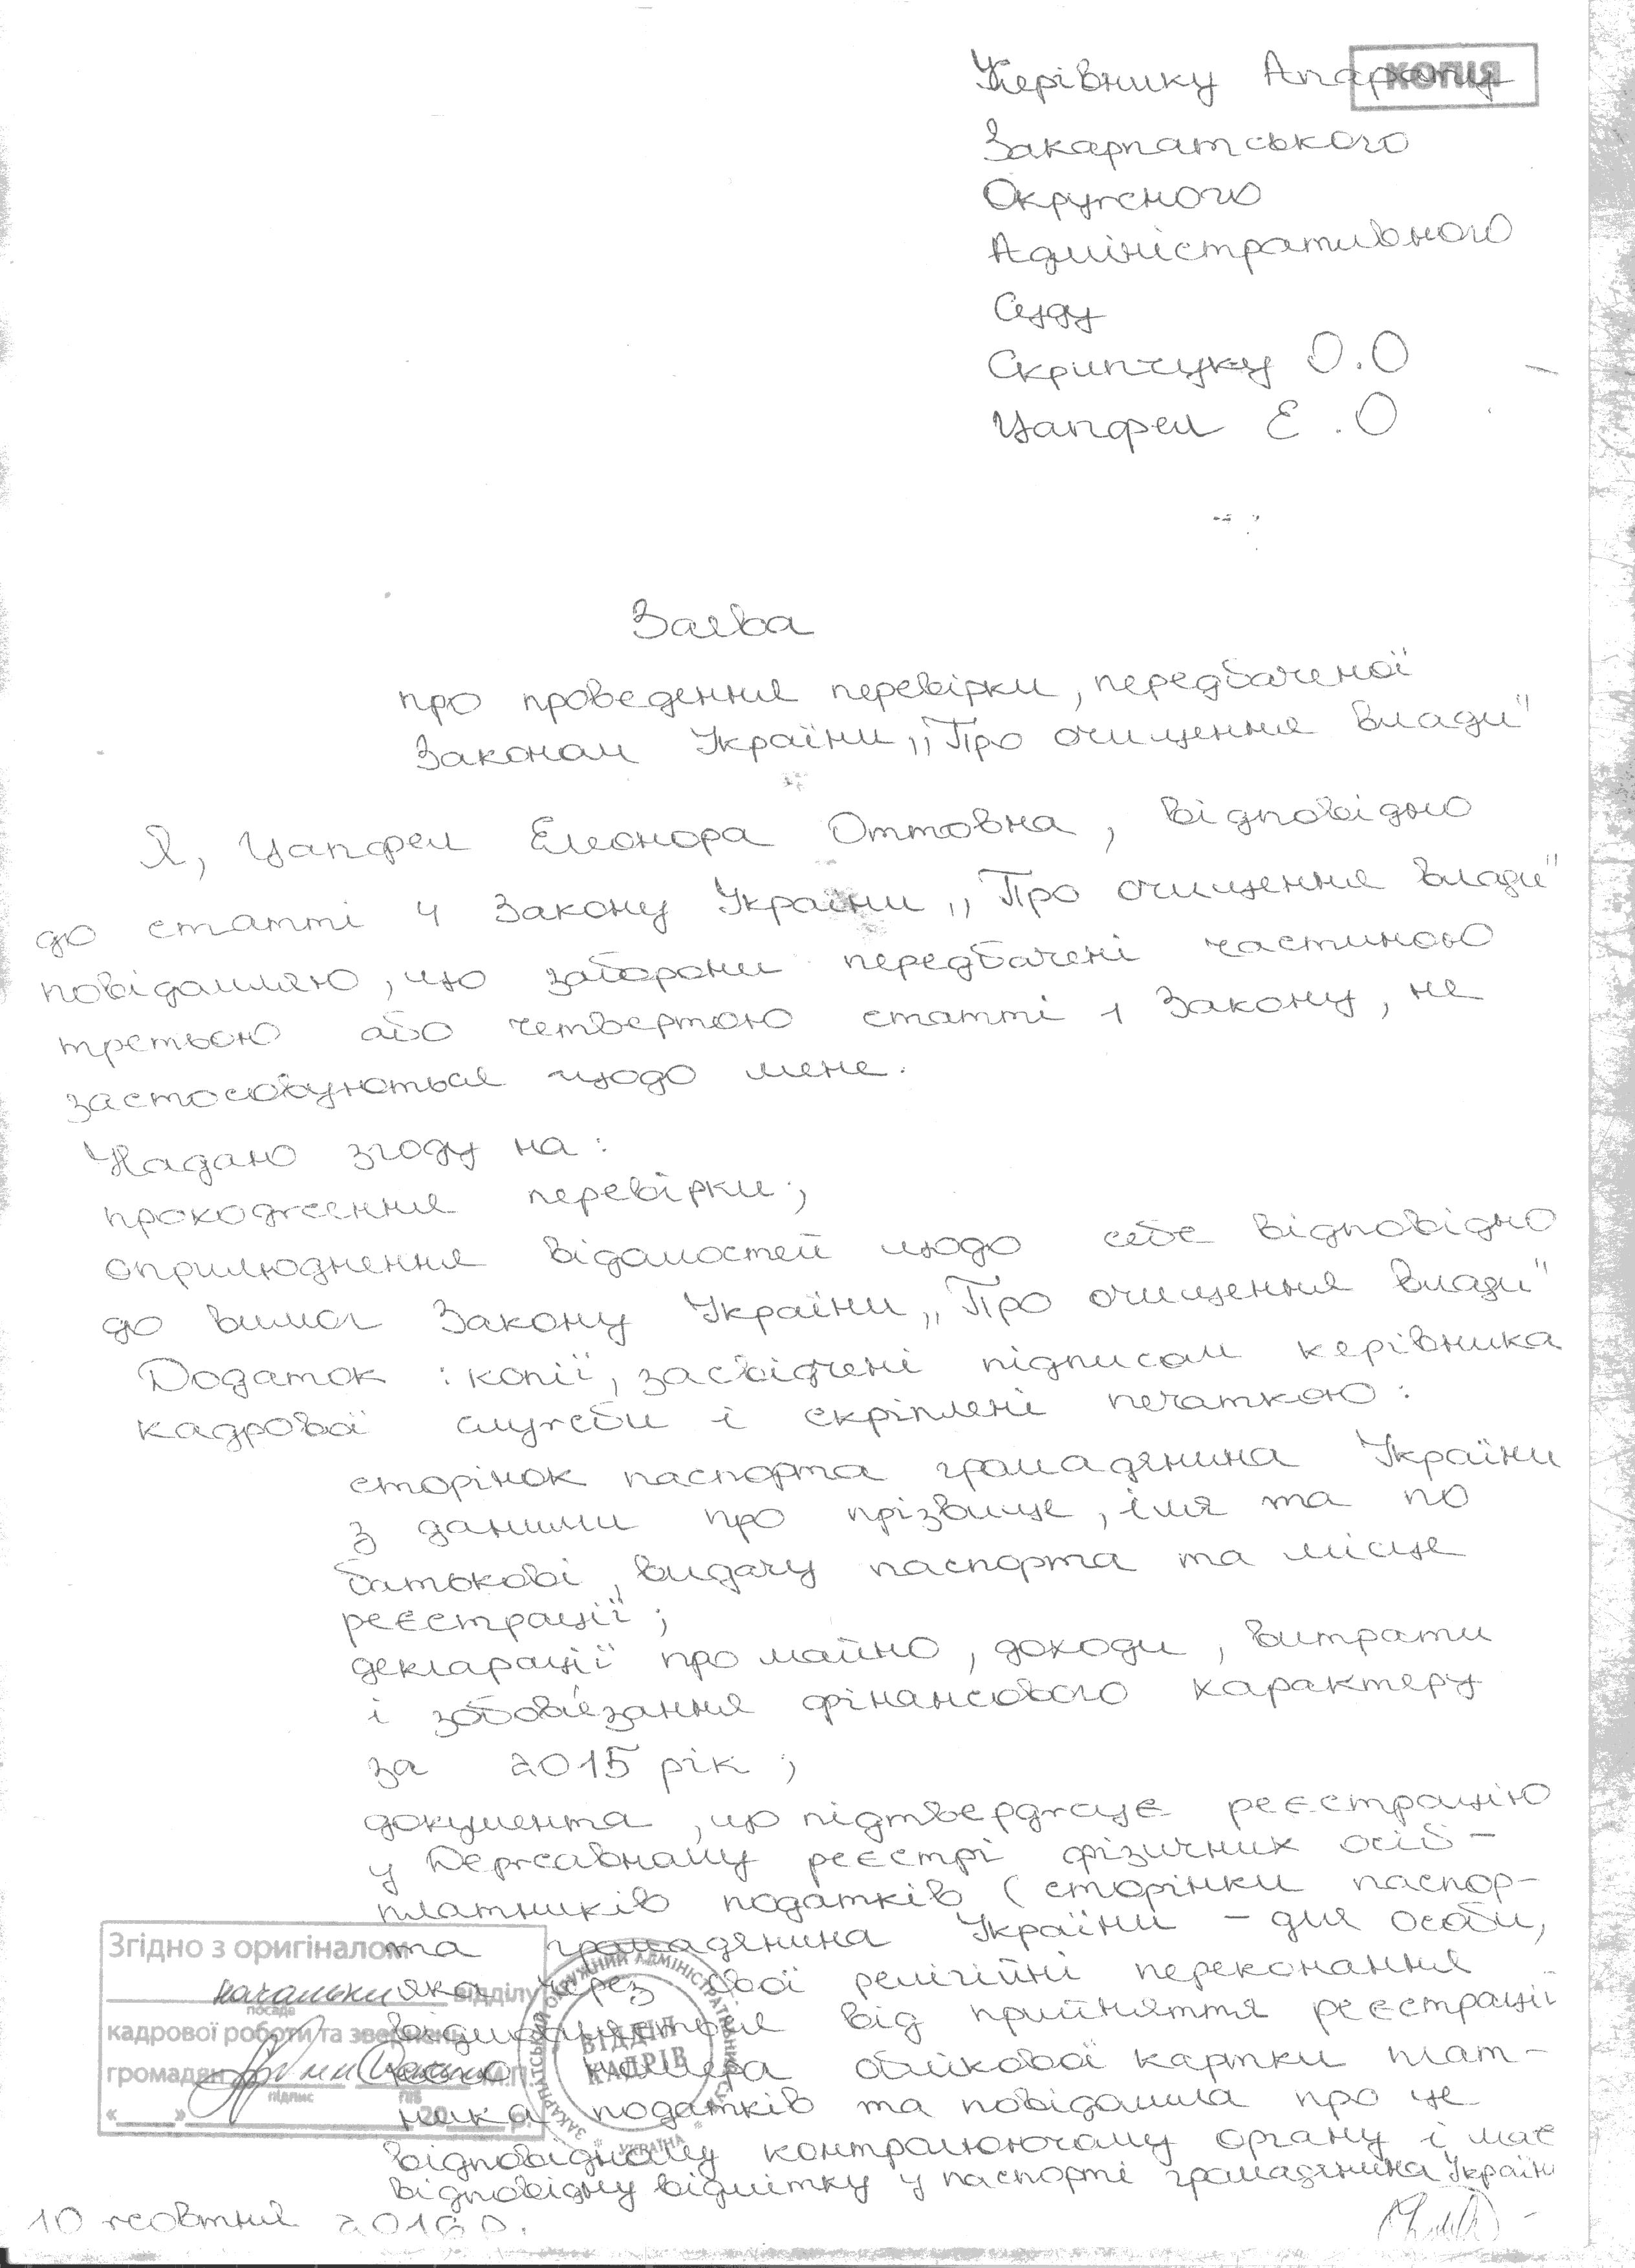 КОПІЯ
Керівнику Апарату
Закарпатського
Окружного
Адміністративного
Суду
Скрипчуку О.О
Цапфел Е.О
Заява
про проведення перевірки, передбаченої
Законом України „Про очищення влади"
Я, Цапфел Елеонора Оттовна, відповідно
до статті 4 Закону України „Про очищення влади"
повідомляю, що заборони передбачені частиною
третьою або четвертою статті 1 Закону, не
застосовуються щодо мене.
Надаю згоду на:
проходження перевірки;
оприлюднення відомостей щодо себе відповідно
до вимог Закону України „Про очищення влади"
Додаток : копії, засвідчені підписом керівника
кадрової служби і скріплені печаткою:
сторінок паспорта громадянина України
з даними про прізвище, імя та по
батькові, видачу паспорта та місце
реєстрації;
декларації про майно, доходи, витрати
і зобов'язання фінансового характеру
за 2015 рік;
документа, що підтверджує реєстрацію
у Державному реєстрі фізичних осіб -
платників податків (сторінки паспор-
та громадянина України - для особи,
яка через свої релігійні переконання
відмовляється від прийняття реєстрації
номера облікової картки плат-
ника податків та повідомила про це
відповідному контролюючому органу і має
відповідну відмітку у паспорті громадянина Україн
10 жовтня 2016 р.
Згідно з оригіналом
начальник відділу
посада
кадрової роботи та звернень
громадян М.П.
підпис ПІБ
«___»______ 20___ р.
ЗАКАРПАТСЬКИЙ ОКРУЖНИЙ АДМІНІСТРАТИВНИЙ СУД * УКРАЇНА *
ВІДДІЛ
КАДРІВ